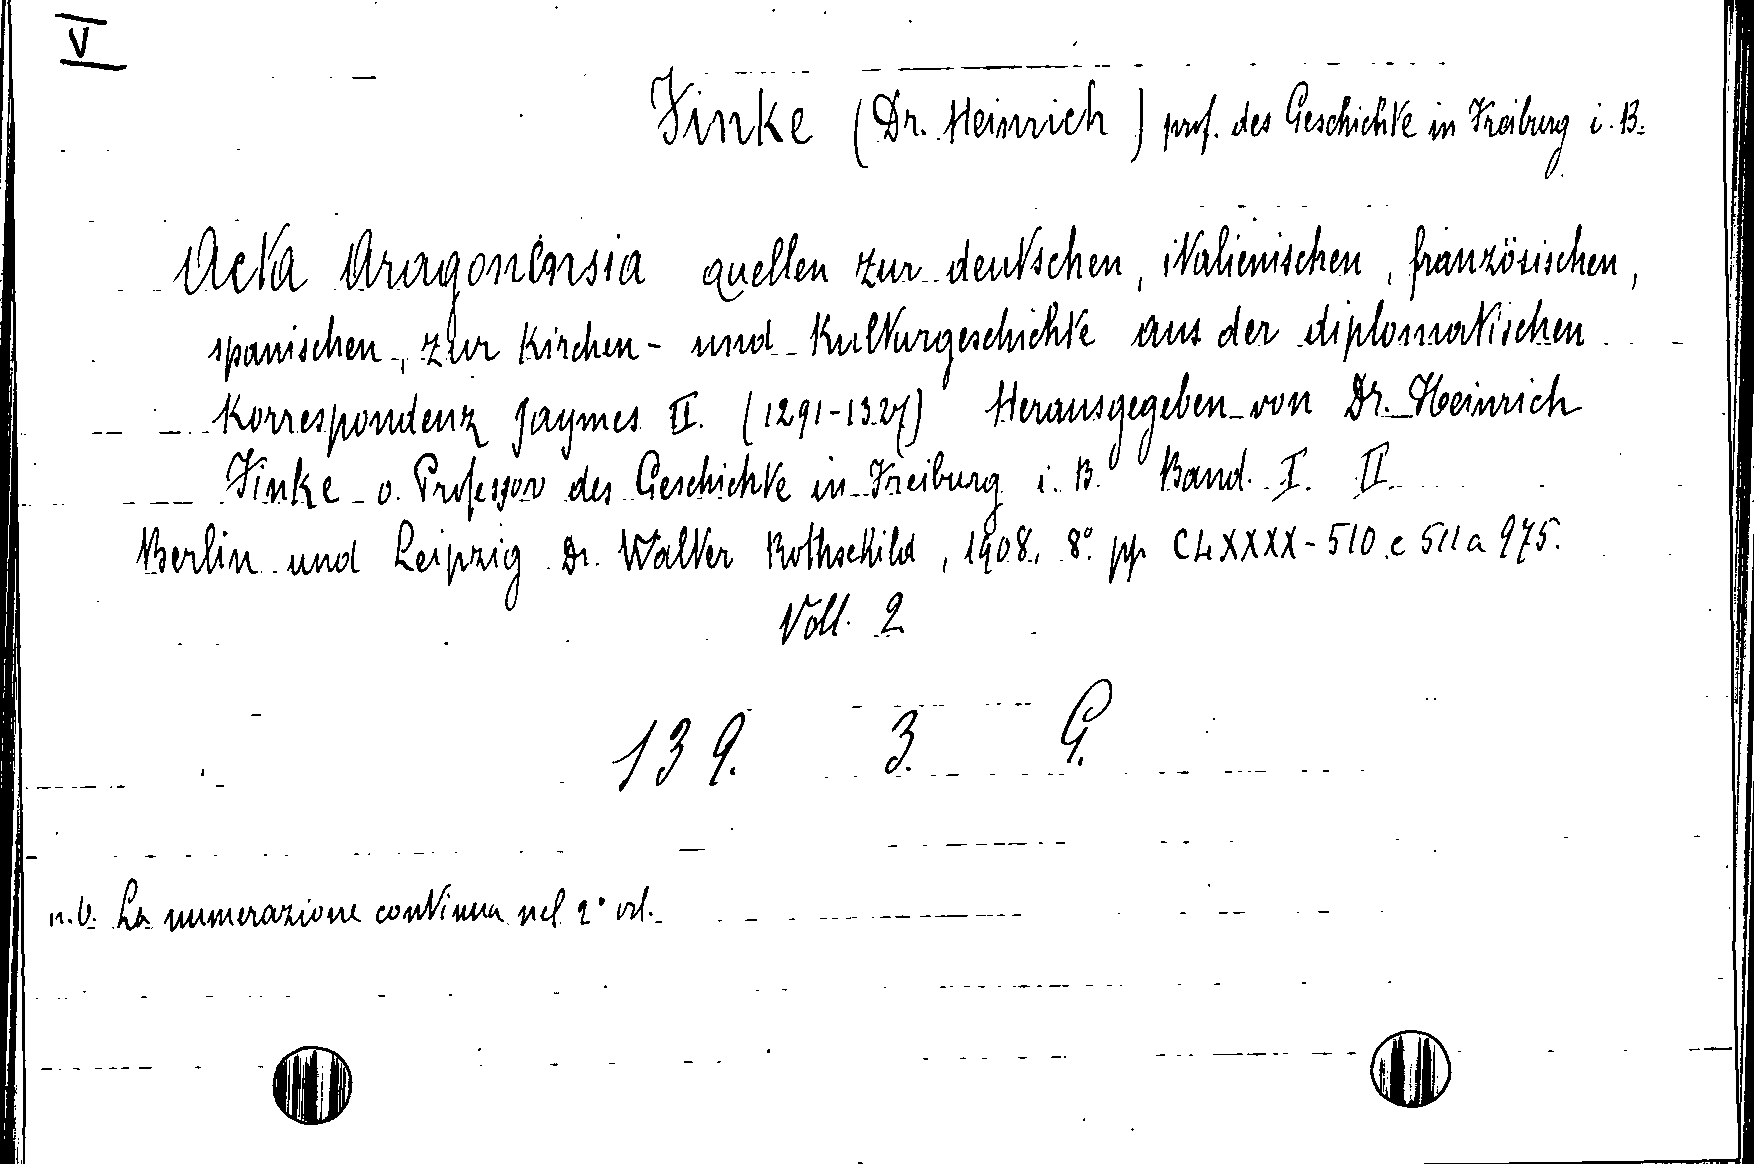 V
Finke (Dr. Heinrich) prof. des Geschichte in Freiburg i. B.
Acta Aragonensia quellen zur deutschen, italienischen, französischen,
spanischen, zur Kirchen- und Kulturgeschichte aus der diplomatischen
Korrespondenz Jaymes II. (1291-1327) Herausgegeben von Dr. Heinrich
Finke o. Professor des Geschichte in Freiburg i. B. Band. I. II.
Berlin und Leipzig Dr. Walter Rothschild, 1908. 8° pp CLXXXX-510 e 511 a 975.
Voll. 2
139. 3. G.
n.b. La numerazione continua nel 2° vol.